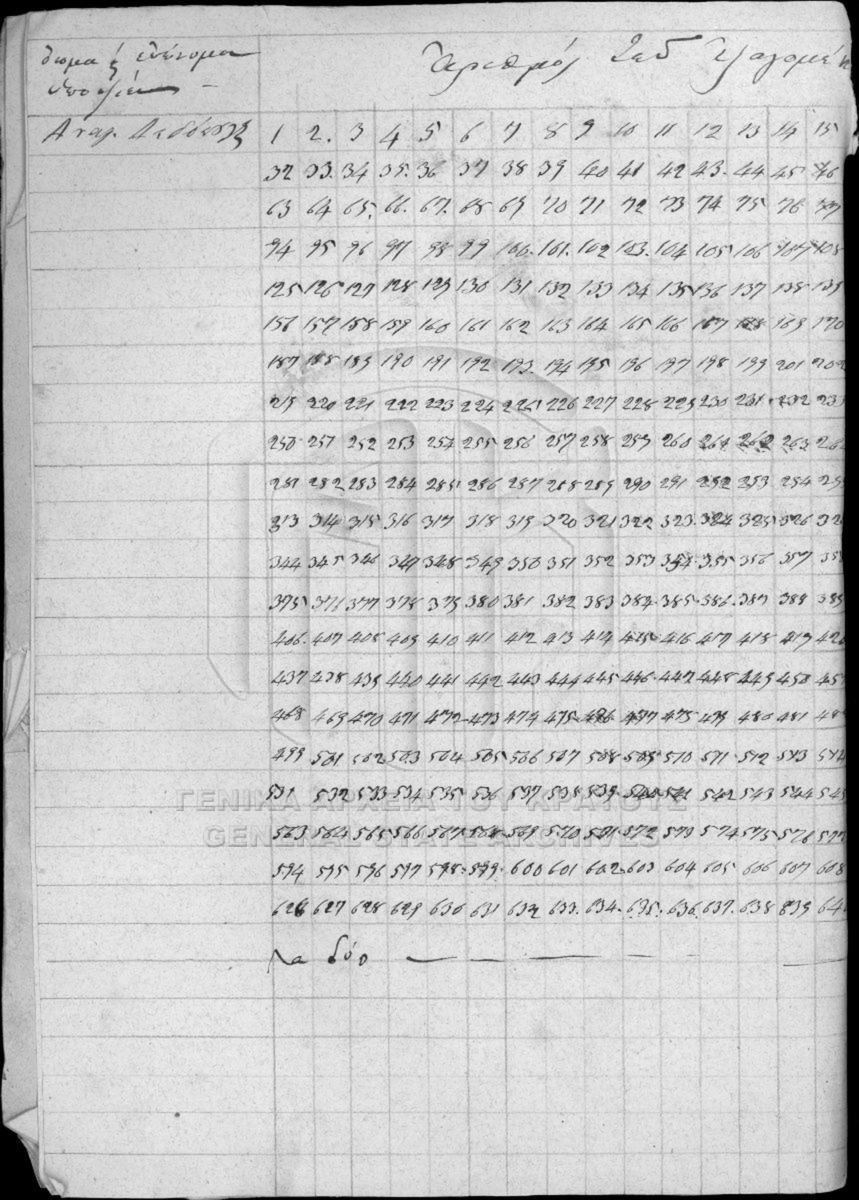 Ἀριθμὸς
1 2. 3 4 5 6 7 8 9 10 11 12 13 14 15
32 33. 34 35. 36 37 38 39 40 41 42 43. 44 45 46
63 64 65. 66. 67. 68 69 70 71 72 73 74 75 76 77
94 95 96 97 98 99 100. 101. 102 103. 104 105 106 107 108
125 126 127 128 129 130 131 132 133 134 135 136 137 138 139
156 157 158 159 160 161 162 163 164 165 166 167 168 169 170
187 188 189 190 191 192 193. 194 195 196 197 198 199 201 202
219 220 221 222 223 224 225 226 227 228 229 230 231 232 233
250 251 252 253 254 255 256 257 258 259 260 261 262 263
281 282 283 284 285 286 287 288 289 290 291 292 293 294
313 314 315 316 317 318 319 320 321 322 323 324 325 326
344 345 346 347 348 349 350 351 352 353 354 355 356 357
375 376 377 378 379 380 381 382 383 384 385 386 387 388 389
406 407 408 409 410 411 412 413 414 415 416 417 418 419 420
437 438 439 440 441 442 443 444 445 446 447 448 449 450
468 469 470 471 472 473 474 475 476 477 478 479 480 481
499 501 502 503 504 505 506 507 508 509 510 511 512 513 514
531 532 533 534 535 536 537 538 539 540 541 542 543 544 545
563 564 565 566 567 568 569 570 571 572 573 574 575 576 577
594 595 596 597 598 599 600 601 602 603 604 605 606 607 608
626 627 628 629 630 631 632 633. 634. 635. 636. 637. 638 639
δύο
ΓΕΝΙΚΑ ΑΡΧΕΙΑ ΤΟΥ ΚΡΑΤΟΥΣ
GENERAL STATE ARCHIVES